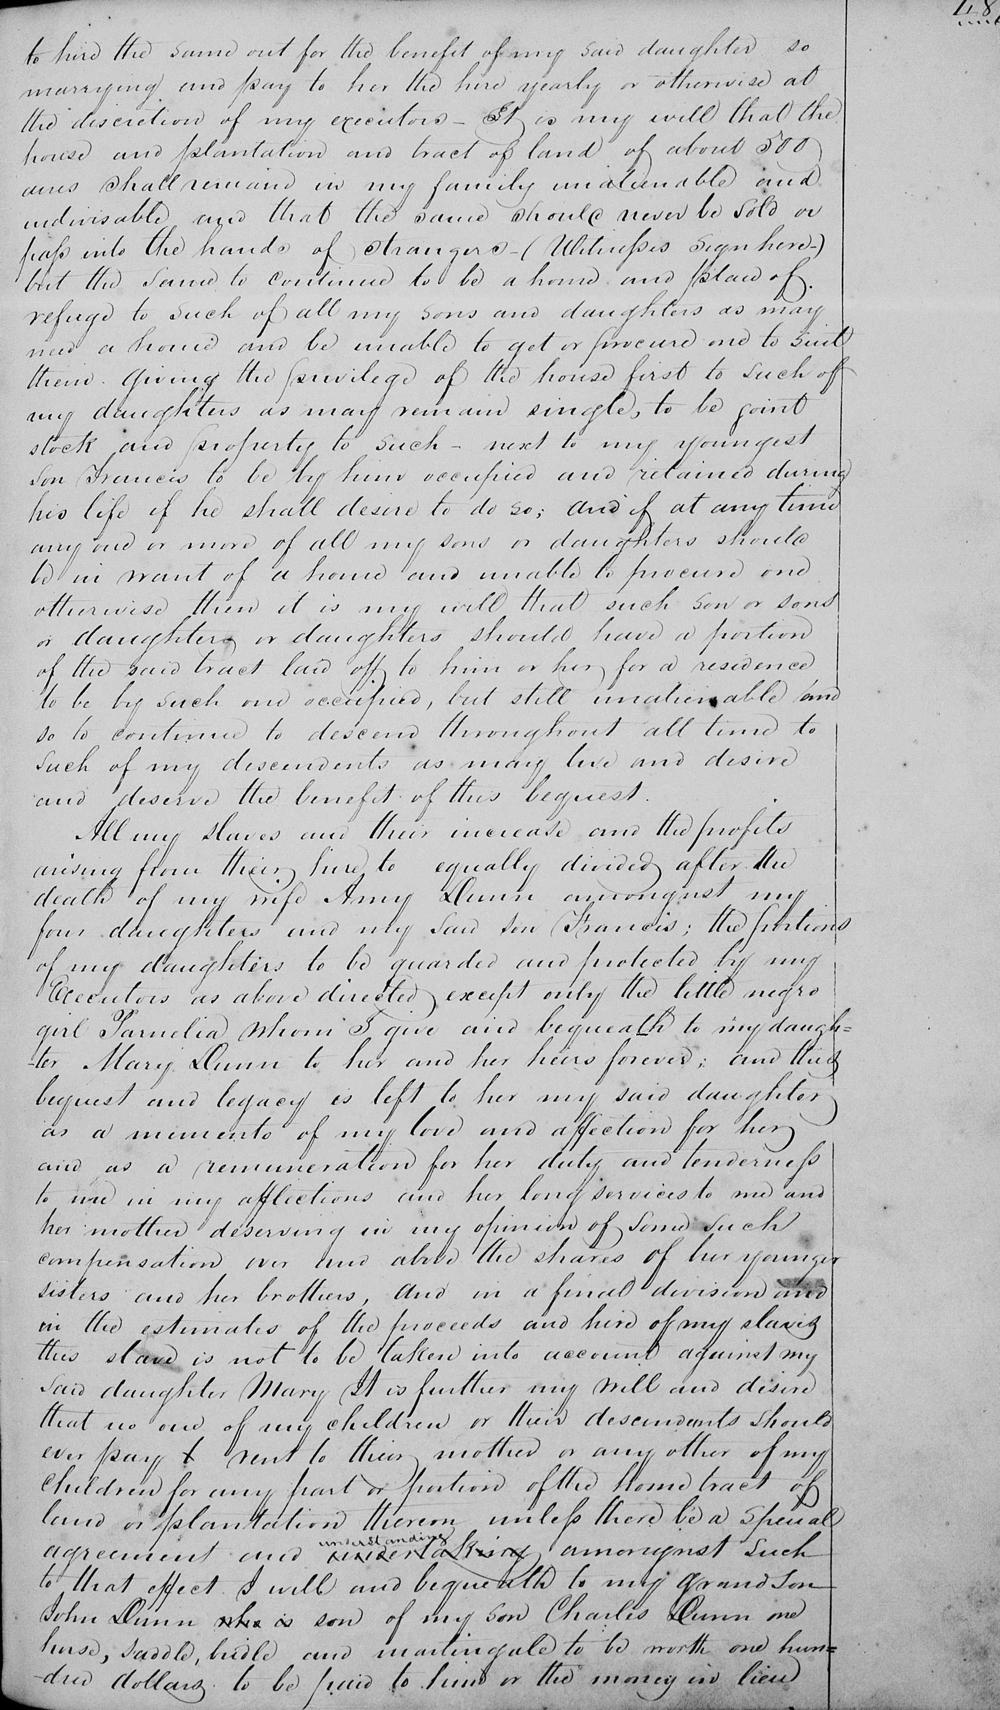 48
to hire the same out for the benefit of my said daughter so
marrying and pay to her the hire yearly or otherwise at
the discretion of my executors - It is my will that the
house and plantation and tract of land of about 500
acres shall remain in my family unalienable and
indivisable and that the same should never be sold or
pass into the hands of strangers - (Witnesses sign here -)
but the same to continue to be a home and place of
refuge to such of all my sons and daughters as may
need a home and be unable to get or procure one to suit
them. Giving the privilege of the house first to such of
my daughters as may remain single, to be joint
stock and property to such - next to my youngest
son Francis to be by him occupied and retained during
his life if he shall desire to do so; and if at any time
any one or more of all my sons or daughters should
be in want of a home and unable to procure one
otherwise then it is my will that such son or sons
or daughter or daughters should have a portion
of the said tract laid off to him or her for a residence
to be by such one occupied, but still unalienable and
so to continue to descend throughout all time to
such of my descendents as may live and desire
and deserve the benefit of this bequest.
All my slaves and their increase and the profits
arising from their hire to equally divided after the
death of my wife Amy Dunn amongst my
four daughters and my said son Francis; the portions
of my daughters to be guarded and protected by my
Executors as above directed, except only the little negro
girl Parnelia whom I give and bequeath to my daugh=
-ter Mary Dunn to her and her heirs forever; and this
bequest and legacy is left to her my said daughter
as a memento of my love and affection for her
and as a remuneration for her duty and tenderness
to me in my afflections and her long services to me and
her mother deserving in my opinion of some such
compensation over and above the shares of her younger
sisters and her brothers, and in a final division and
in the estimates of the proceeds and hire of my slaves
this slave is not to be taken into account against my
said daughter Mary It is further my will and desire
that no one of my children or their descendents should
ever pay t rent to their mother or any other of my
children for any part or portion of the home tract of
land or plantation thereon unless there be a special
agreement and undertaking understanding amongst such
to that effect I will and bequeath to my grand son
John Dunn who is son of my son Charles Dunn one
horse, saddle, bridle and martingale to be worth one hun=
-dred dollars to be paid to him or the money in lieu